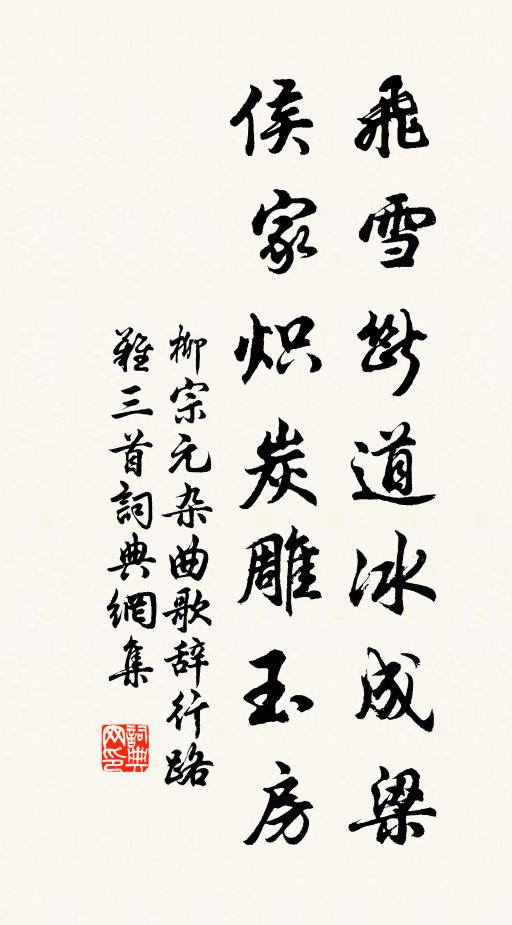 飛雪斷道冰成梁
侯家炽炭雕玉房
柳宗元杂曲歌辞行路
難三首詞典網集
詞典网印